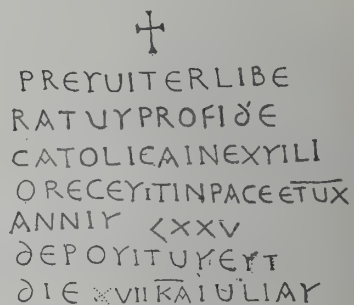 ✝
PRESUITERLIBE
RATUSPROFIDE
CATOLICAINEXSILI
ORECESITINPACEETUX
ANNIS LXXV
DEPOSITUSEST
DIE XVII KAIULIAS